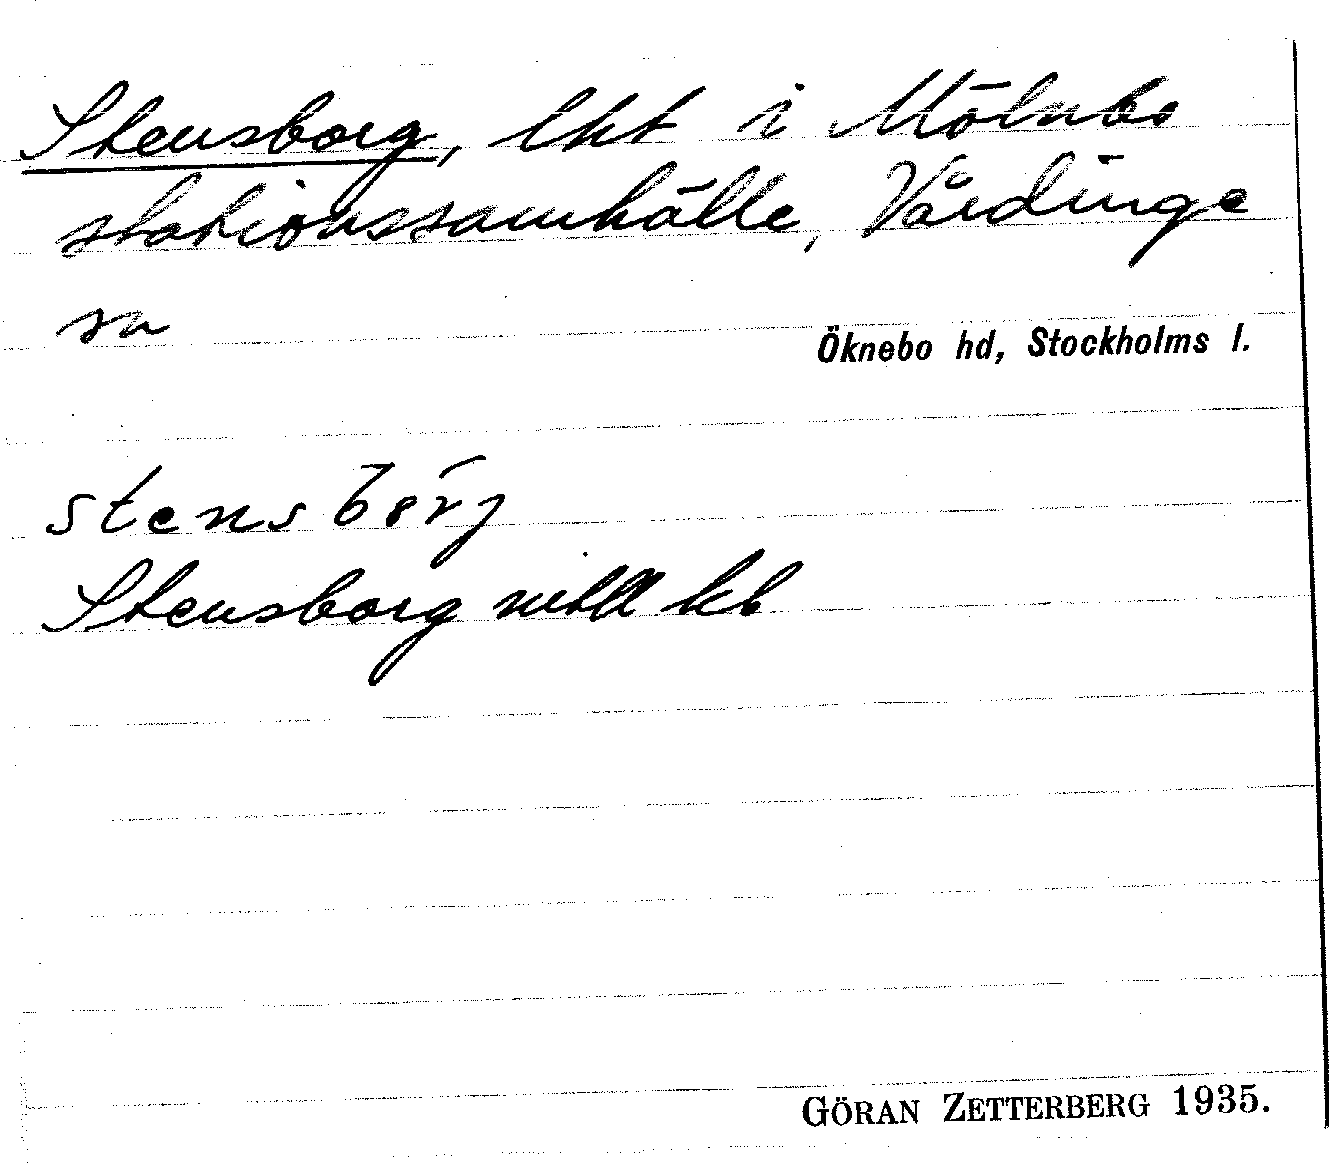 Stensborg, lht i Mölnbo
stationssamhälle, Vårdinge
sn
Öknebo hd, Stockholms l.
Stensborg kb
GÖRAN ZETTERBERG 1935.